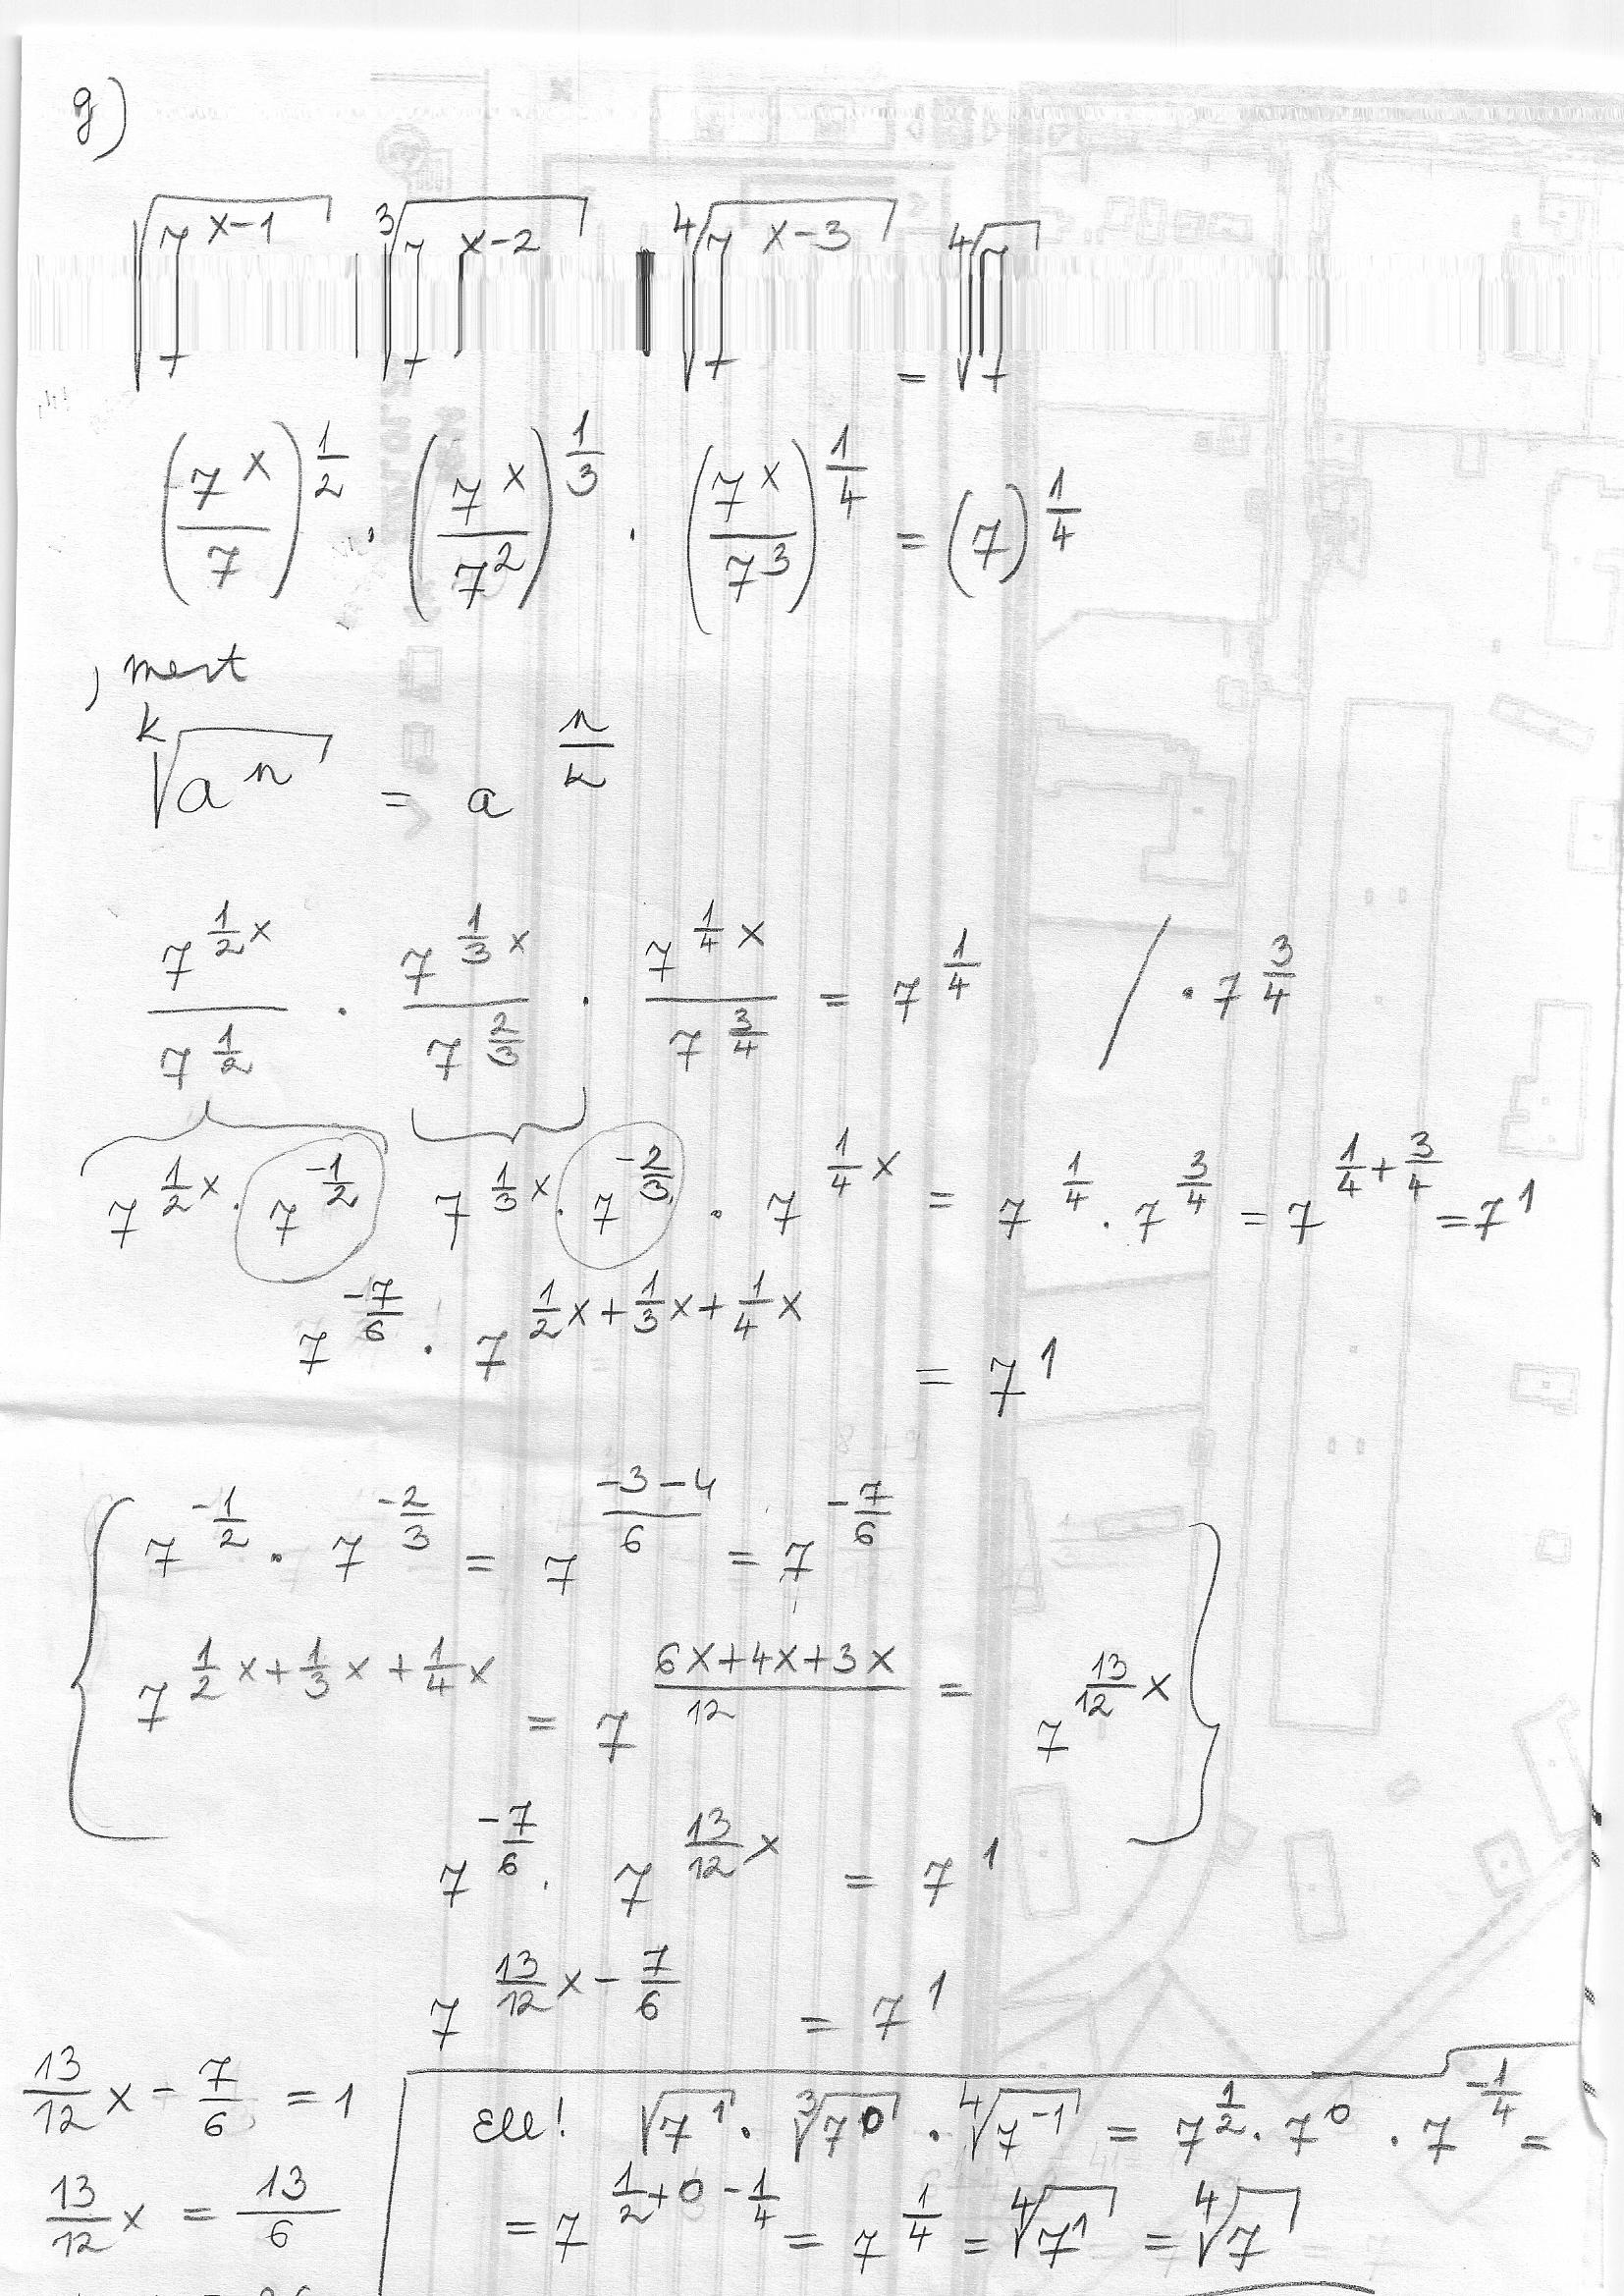 g)
√(7^(x-1)) · ∛(7^(x-2)) · ∜(7^(x-3)) = ∜7
(7^x/7)^(1/2) · (7^x/7^2)^(1/3) · (7^x/7^3)^(1/4) = (7)^(1/4)
, mert
ᵏ√(a^n) = a^(n/k)
7^(1/2 x)/7^(1/2) · 7^(1/3 x)/7^(2/3) · 7^(1/4 x)/7^(3/4) = 7^(1/4) / · 7^(3/4)
7^(1/2 x) · 7^(-1/2) 7^(1/3 x) · 7^(-2/3) · 7^(1/4 x) = 7^(1/4) · 7^(3/4) = 7^(1/4+3/4) = 7^1
7^(-7/6) · 7^(1/2 x + 1/3 x + 1/4 x) = 7^1
7^(-1/2) · 7^(-2/3) = 7^((-3-4)/6) = 7^(-7/6)
7^(1/2 x + 1/3 x + 1/4 x) = 7^((6x+4x+3x)/12) = 7^(13/12 x)
7^(-7/6) · 7^(13/12 x) = 7^1
7^(13/12 x - 7/6) = 7^1
13/12 x - 7/6 = 1
13/12 x = 13/6
Ell! √(7^1) · ∛(7^0) · ∜(7^-1) = 7^(1/2) · 7^0 · 7^(-1/4) =
= 7^(1/2+0-1/4) = 7^(1/4) = ∜(7^1) = ∜7